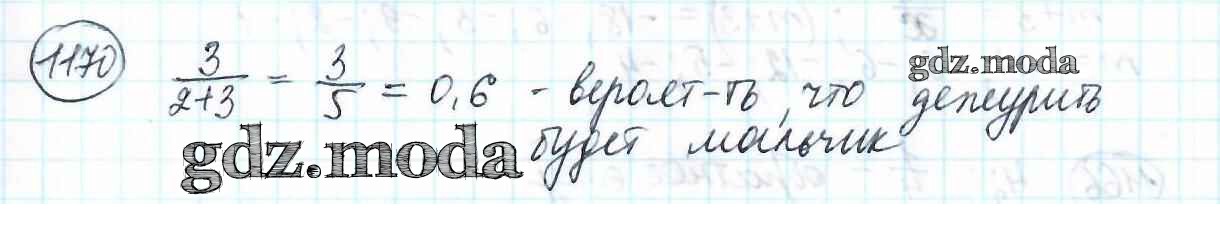 1170 3/(2+3) = 3/5 = 0,6 - вероят-ть, что дежурить
будет мальчик
gdz.moda
gdz.moda